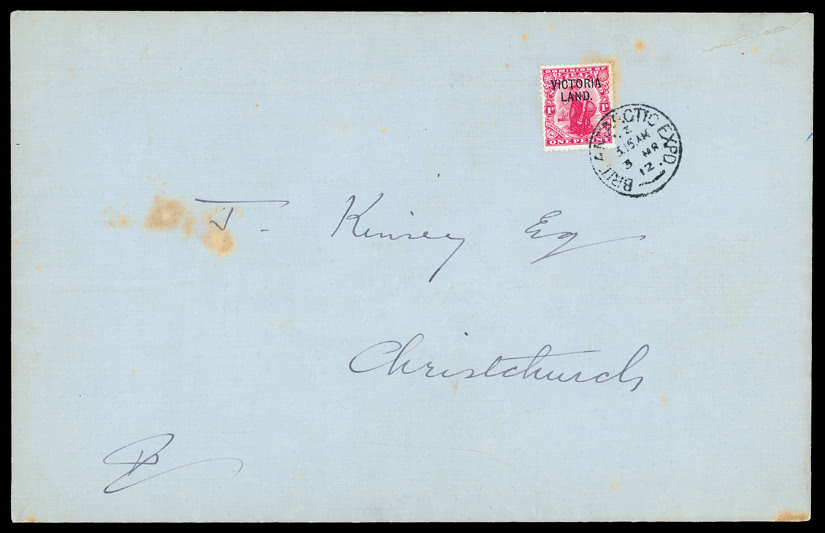 DOMINION OF
VICTORIA
LAND.
1D
ONE PENNY
BRIT. ANTARCTIC EXPD.
3.15 AM
3 MR
12
J. Kinsey Esq
Christchurch